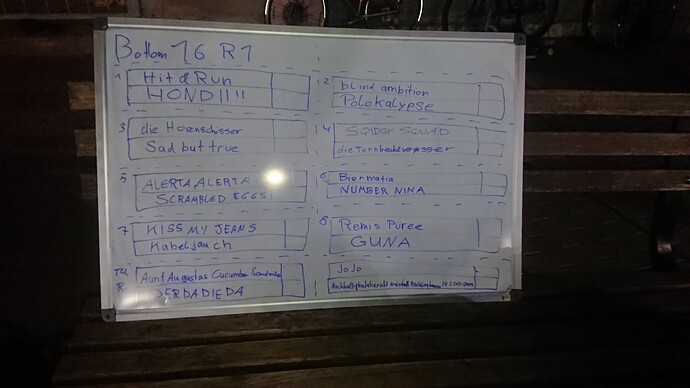 Bottom 16 R1
1 Hit & Run
HOND!!!!
2 blind ambition
Polokalypse
3 die Hosenschisser
Sad but true
4 SQIDGY SQUAD
die Turnbeutelvergesser
5 ALERTA ALERTA
SCRAMBLED EGGS
6 Biermafia
NUMBER NINA
7 KISS MY JEANS
Kabeljauch
8 Remis Püree
GUNA
Aunt Augustas Cucumber Sandwiches
DERDADIEDA
JoJo